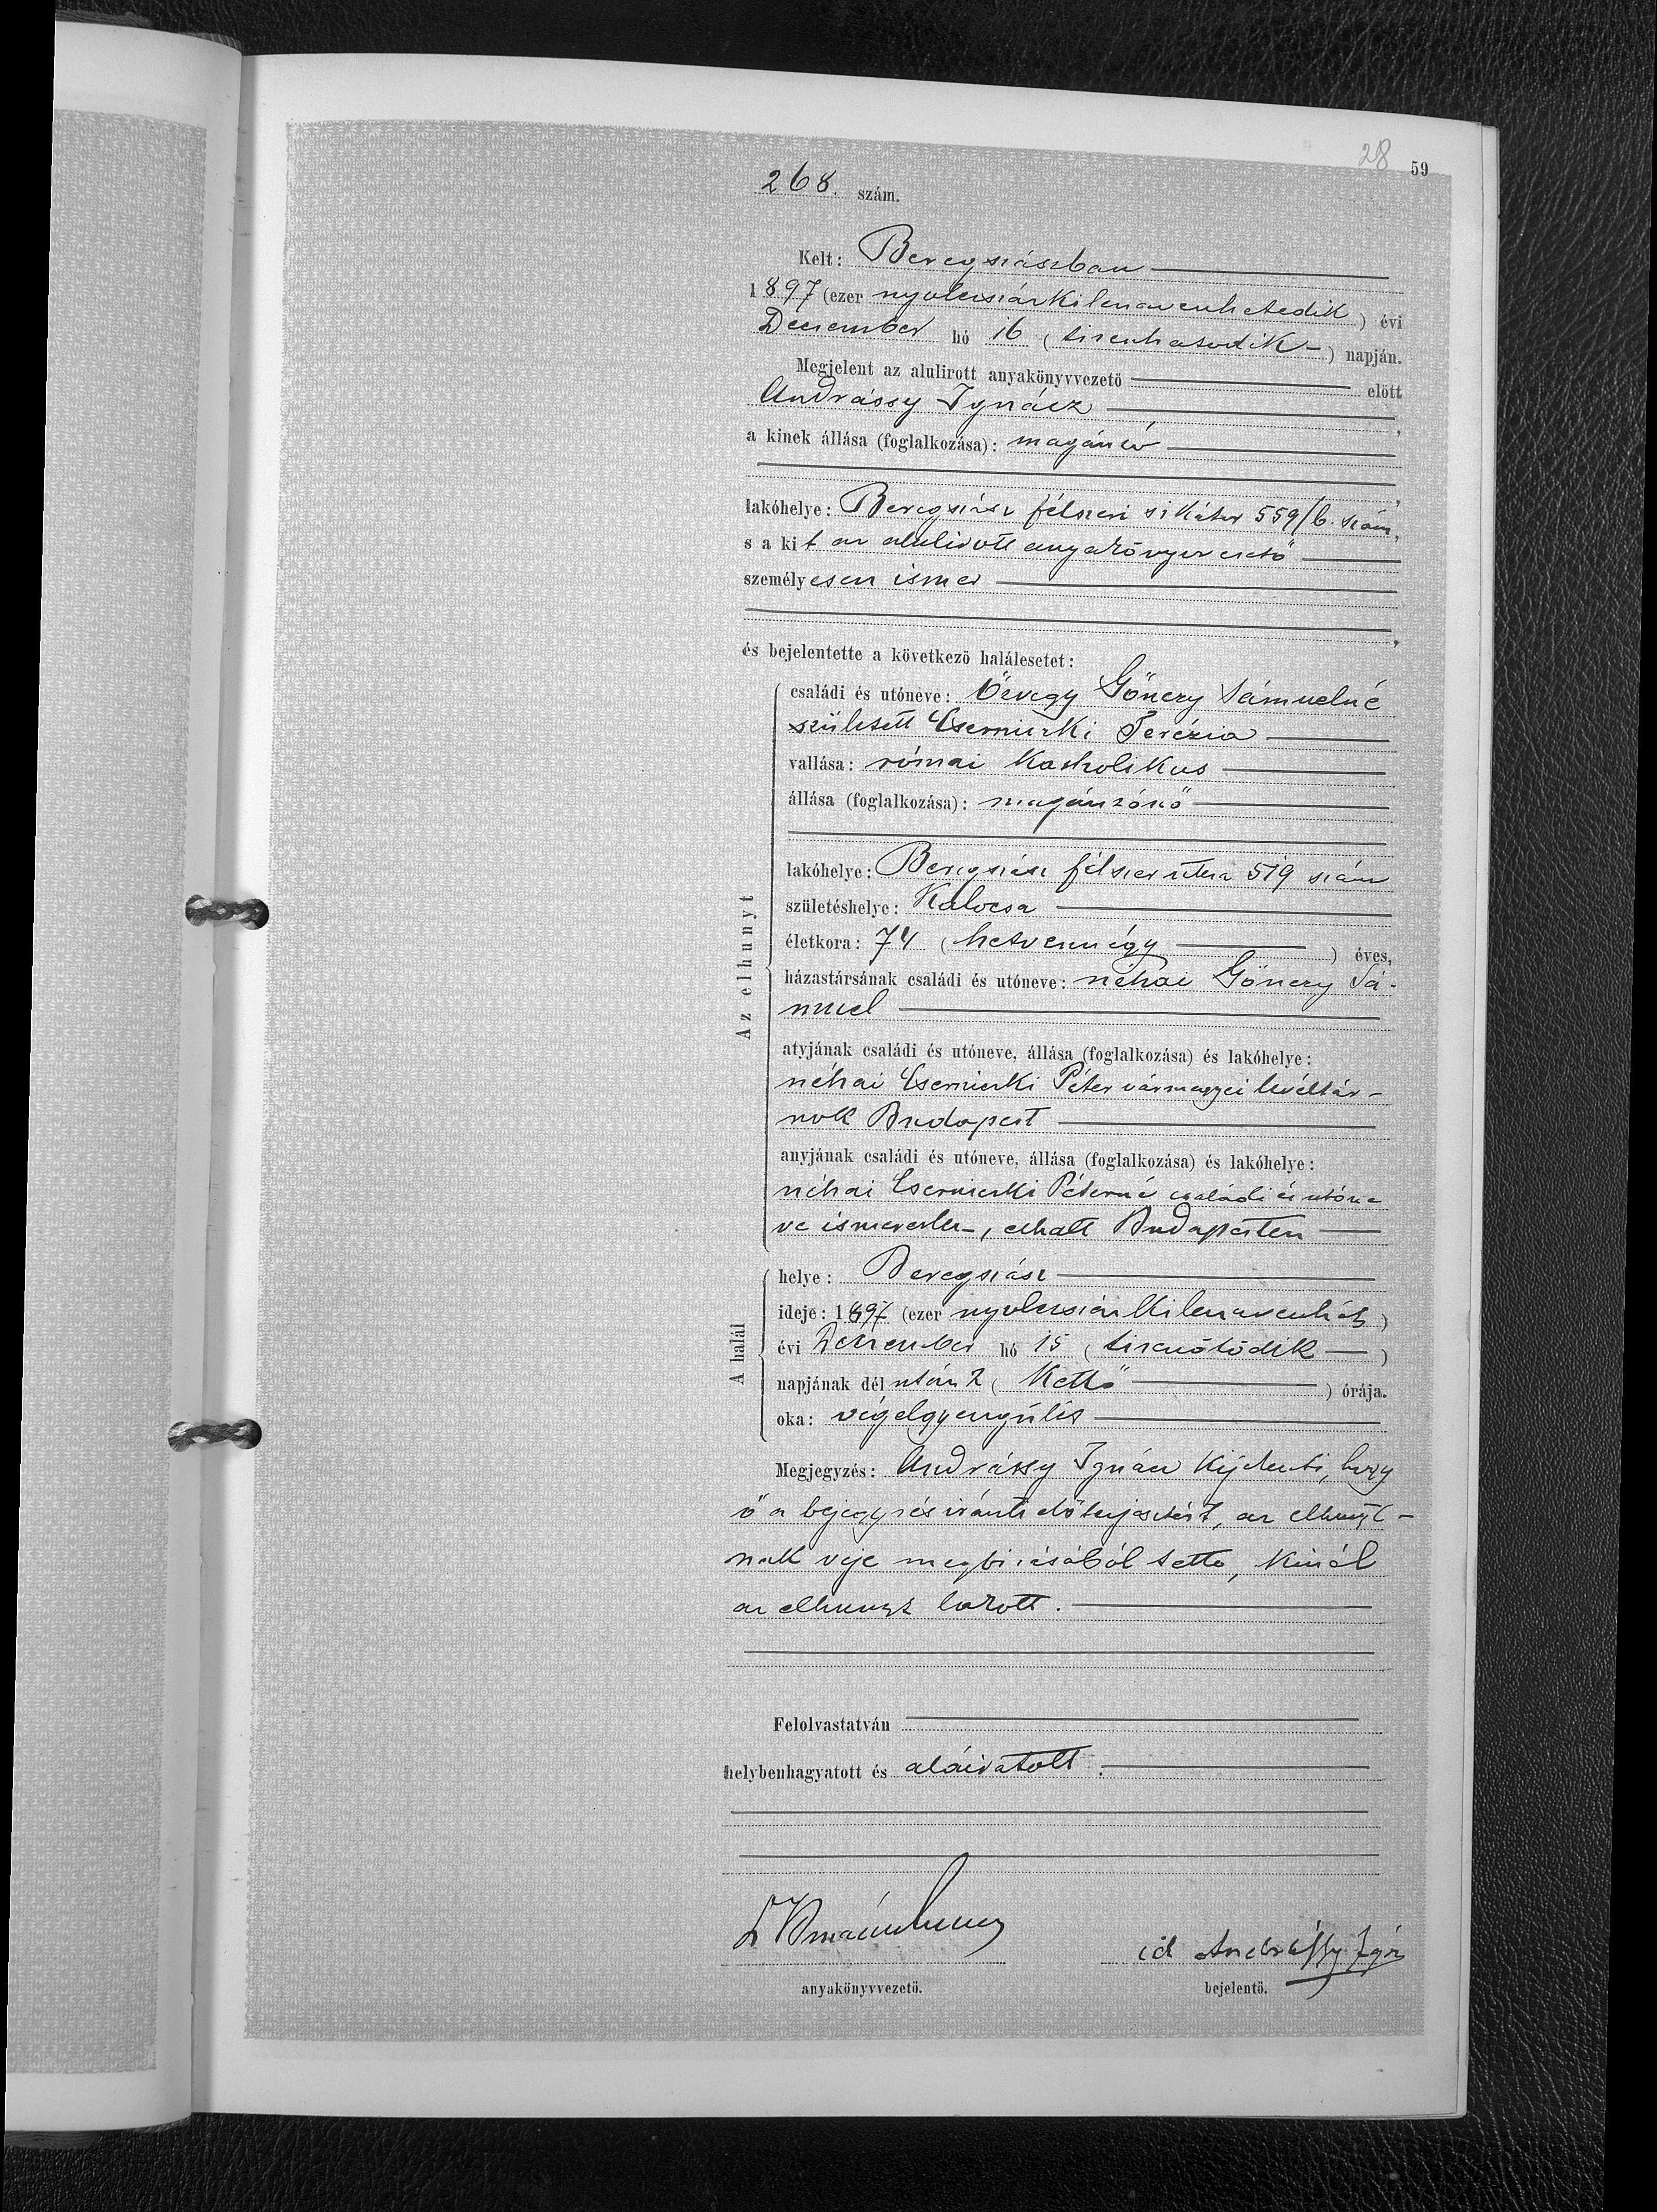 28 59
268. szám.
Kelt: Beregszászban
1897 (ezer nyolczszázkilenczvenhetedik) évi
December hó 16 (tizenhatodik) napján.
Megjelent az alulirott anyakönyvvezető előtt
Andrássy Ignácz,
a kinek állása (foglalkozása): magánzó
,
lakóhelye: Beregszász félszeri sikátor 559/b. szám,
s a kit az alulirott anyakönyvvezető
személyesen ismer
,
és bejelentette a következő halálesetet:
családi és utóneve: Özvegy Gönczy Sámuelné
született Csernitzki Terézia
vallása: római katholikus
állása (foglalkozása): magánzónő
lakóhelye: Beregszász félszer utcza 519 szám
születéshelye: Kalocsa
Az elhunyt
életkora: 74 (hetvennégy) éves,
házastársának családi és utóneve: néhai Gönczy Sá-
muel
atyjának családi és utóneve, állása (foglalkozása) és lakóhelye:
néhai Péter vármegyei levéltár-
nok Budapest
anyjának családi és utóneve, állása (foglalkozása) és lakóhelye:
néhai Péterné családi és utóne
ve ismeretlen, elhalt Budapesten
helye: Beregszász
ideje: 1897 (ezer nyolczszázkilenczvenhét)
A halál
évi December hó 15 (tizenötödik)
napjának dél után 2 (kettő) órája.
oka: végelgyengülés
Megjegyzés: Andrássy Ignácz kijelenti, hogy
ő a bejegyzés iránti előterjesztést, az elhunyt-
nak veje megbizásából tette, kinél
az elhunyt lakott.
Felolvastatván
helybenhagyatott és aláiratott.
id Andrássy Ign
anyakönyvvezető. bejelentő.